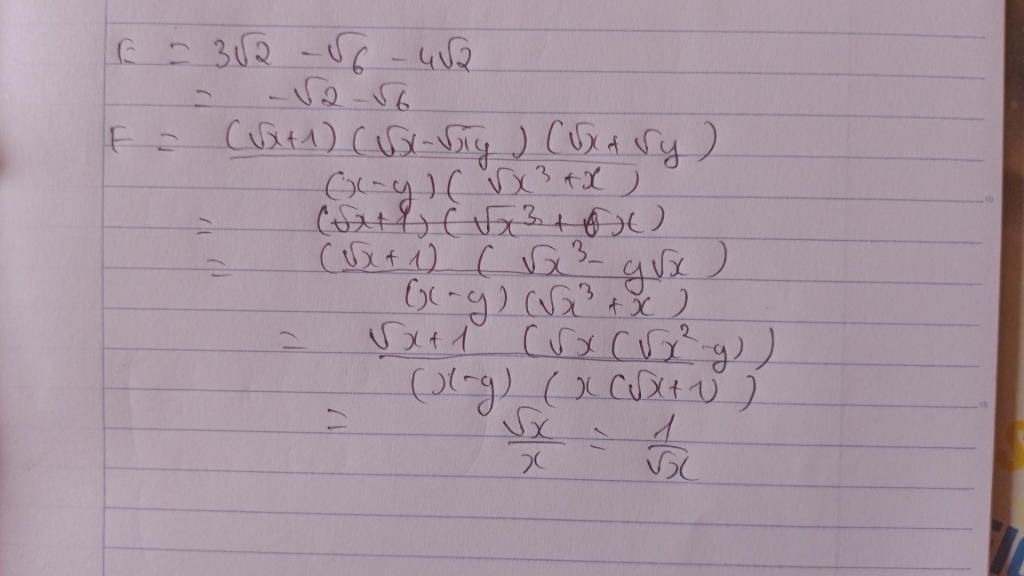 E = 3√2 - √6 - 4√2
= -√2 - √6
F = (√x+1) (√x - √xy) (√x + √y)
(x-y) (√x³ + x)
= (√x+1) (√x³ + x)
= (√x+1) (√x³ - y√x)
(x-y) (√x³ + x)
= √x+1 (√x (√x² - y))
(x-y) (x (√x+1))
= √x/x = 1/√x